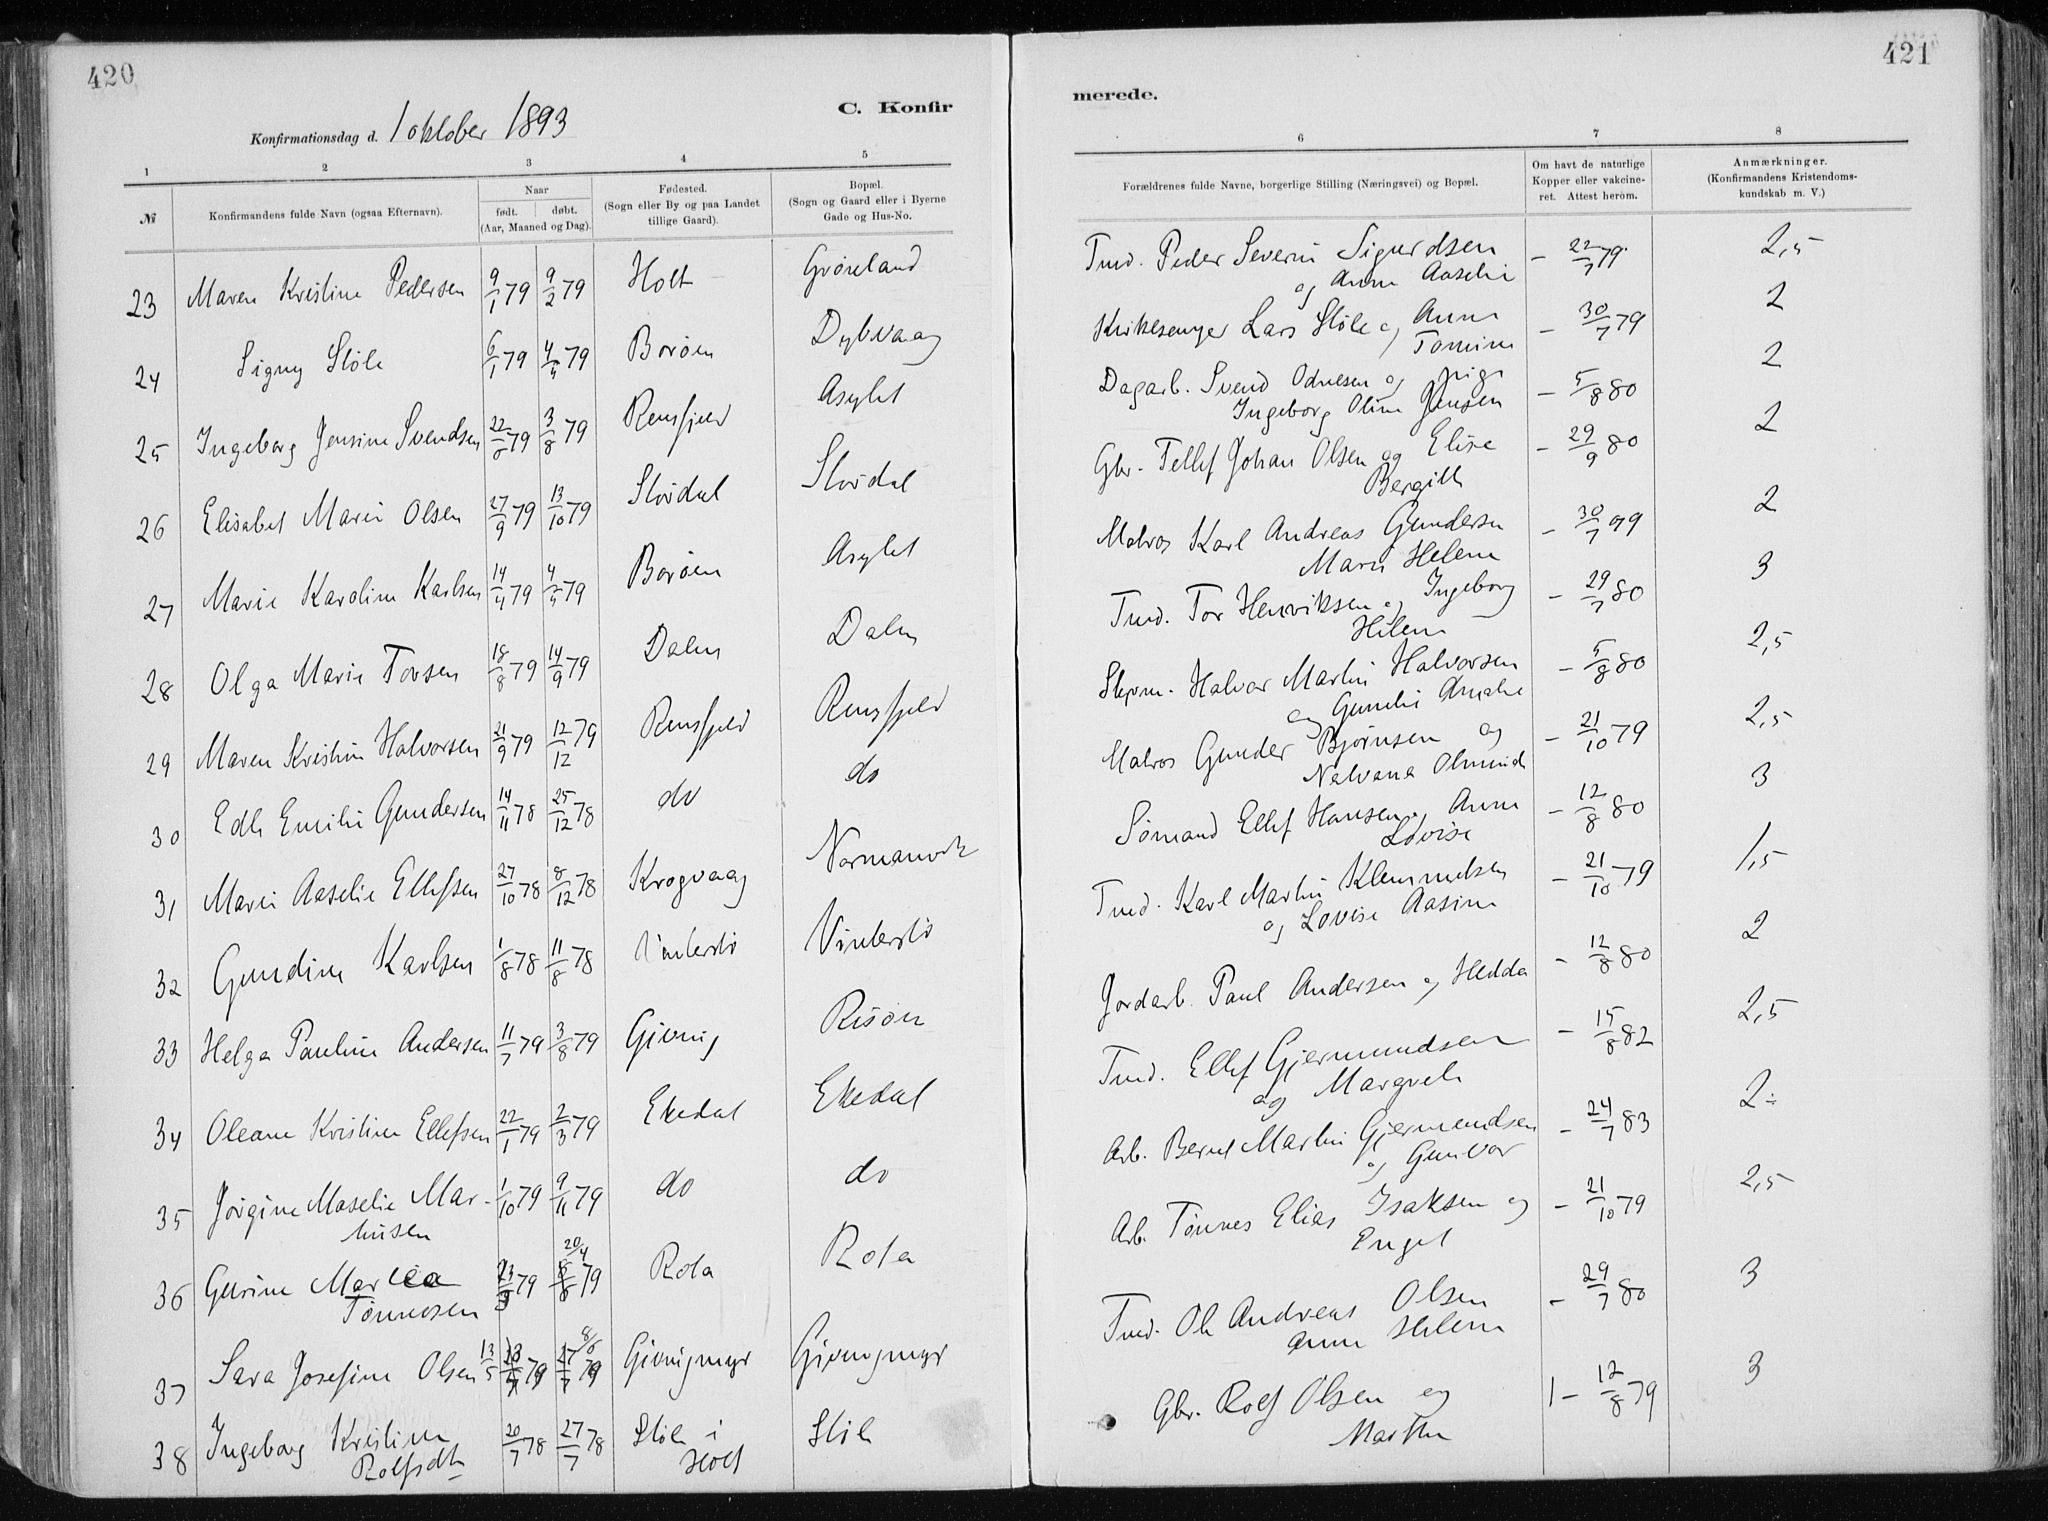 420
C. Konfir
Konfirmationsdag d. 1 oktober 1893
1 2 3 4 5
№ Konfirmandens fulde Navn (ogsaa Efternavn). Naar født. døbt. (Aar, Maaned og Dag). Fødested. (Sogn eller By og paa Landet tillige Gaard). Bopæl. (Sogn og Gaard eller i Byerne Gade og Hus-No.
23 Maren Kristine Pedersen 9/1 79 9/2 79 Holt Grøneland
24 Signy Støle 6/1 79 4/5 79 Borøen Dybvaag
25 Ingeborg Jensine Svendsen 22/6 79 3/8 79 Rensfjeld Asylet
26 Elisabet Marie Olsen 27/9 79 13/10 79 Slørdal Slørdal
27 Marie Karoline Karlsen 14/4 79 4/5 79 Borøen Asylet
28 Olga Marie Torsen 18/8 79 14/9 79 Dalen Dalen
29 Maren Kristine Halvorsen 21/9 79 12/12 79 Rensfjeld Rensfjeld
30 Edle Emilie Gundersen 14/11 78 25/12 78 do do
31 Marie Aaselie Ellefsen 27/10 78 8/12 78 Krogvaag Normanvik
32 Gundine Karlsen 1/8 78 11/8 78 Vinterstø Vinterstø
33 Helga Pauline Andersen 11/7 79 3/8 79 Gjevnig Risøen
34 Oleane Kristine Ellefsen 22/1 79 2/3 79 Ekedal Ekedal
35 Jørgine Maselie Mar-
tinsen 1/10 79 9/11 79 do do
36 Gurine Maria
Tønnesen 79 20/4 79 Rota Rota
37 Sara Josefine Olsen 13/5 79 8/6 79 Gjevnigmyr Gjevnigmyr
38 Ingeborg Kristine
Rolfsdt 20/7 78 27/7 78 Støle i
Holt Støle
421
merede.
6 7 8
Forældrenes fulde Navne, borgerlige Stilling (Næringsvei) og Bopæl. Om havt de naturlige Kopper eller vakcineret. Attest herom. Anmærkninger. (Konfirmandens Kristendomskundskab m. V.)
Tmd. Peder Severin Sigurdsen
og Anne Aaselie – 22/7 79 2,5
Kirkesanger Lars Støle og Anne
Tomine – 30/7 79 2
Dagarb. Svend Odnesen og pige
Ingeborg Oline Jensen – 5/8 80 2
Gbr. Tellef Johan Olsen og Elise
Bergitte – 29/9 80 2
Matros Karl Andreas Gundersen
Maren Helene – 30/7 79 2
Tmd. Tor Henriksen og Ingeborg
Helene – 29/7 80 3
Skpm. Halvor Martin Halvorsen
og Gunelie Amalie – 5/8 80 2,5
Matros Gunder Bjørnsen og
Nelvana Olminde – 21/10 79 2,5
Sømand Ellef Hansen, Anne
Lovise – 12/8 80 3
Tmd. Karl Martin Klemmetsen
og Lovise Aasine – 21/10 79 1,5
Jordarb. Paul Andersen og Hedda – 12/8 80 2
Tmd. Ellef Gjermundsen
og Margrete – 15/8 82 2,5
Arb. Bernt Martin Gjermundsen
og Gunvor – 24/7 83 2÷
Arb. Tønnes Elias Isaksen og
Engel – 21/10 79 2,5
Tmd. Ole Andreas Olsen
Anne Helene – 29/7 80 3
Gbr. Rolf Olsen og
Marthe – 12/8 79 3